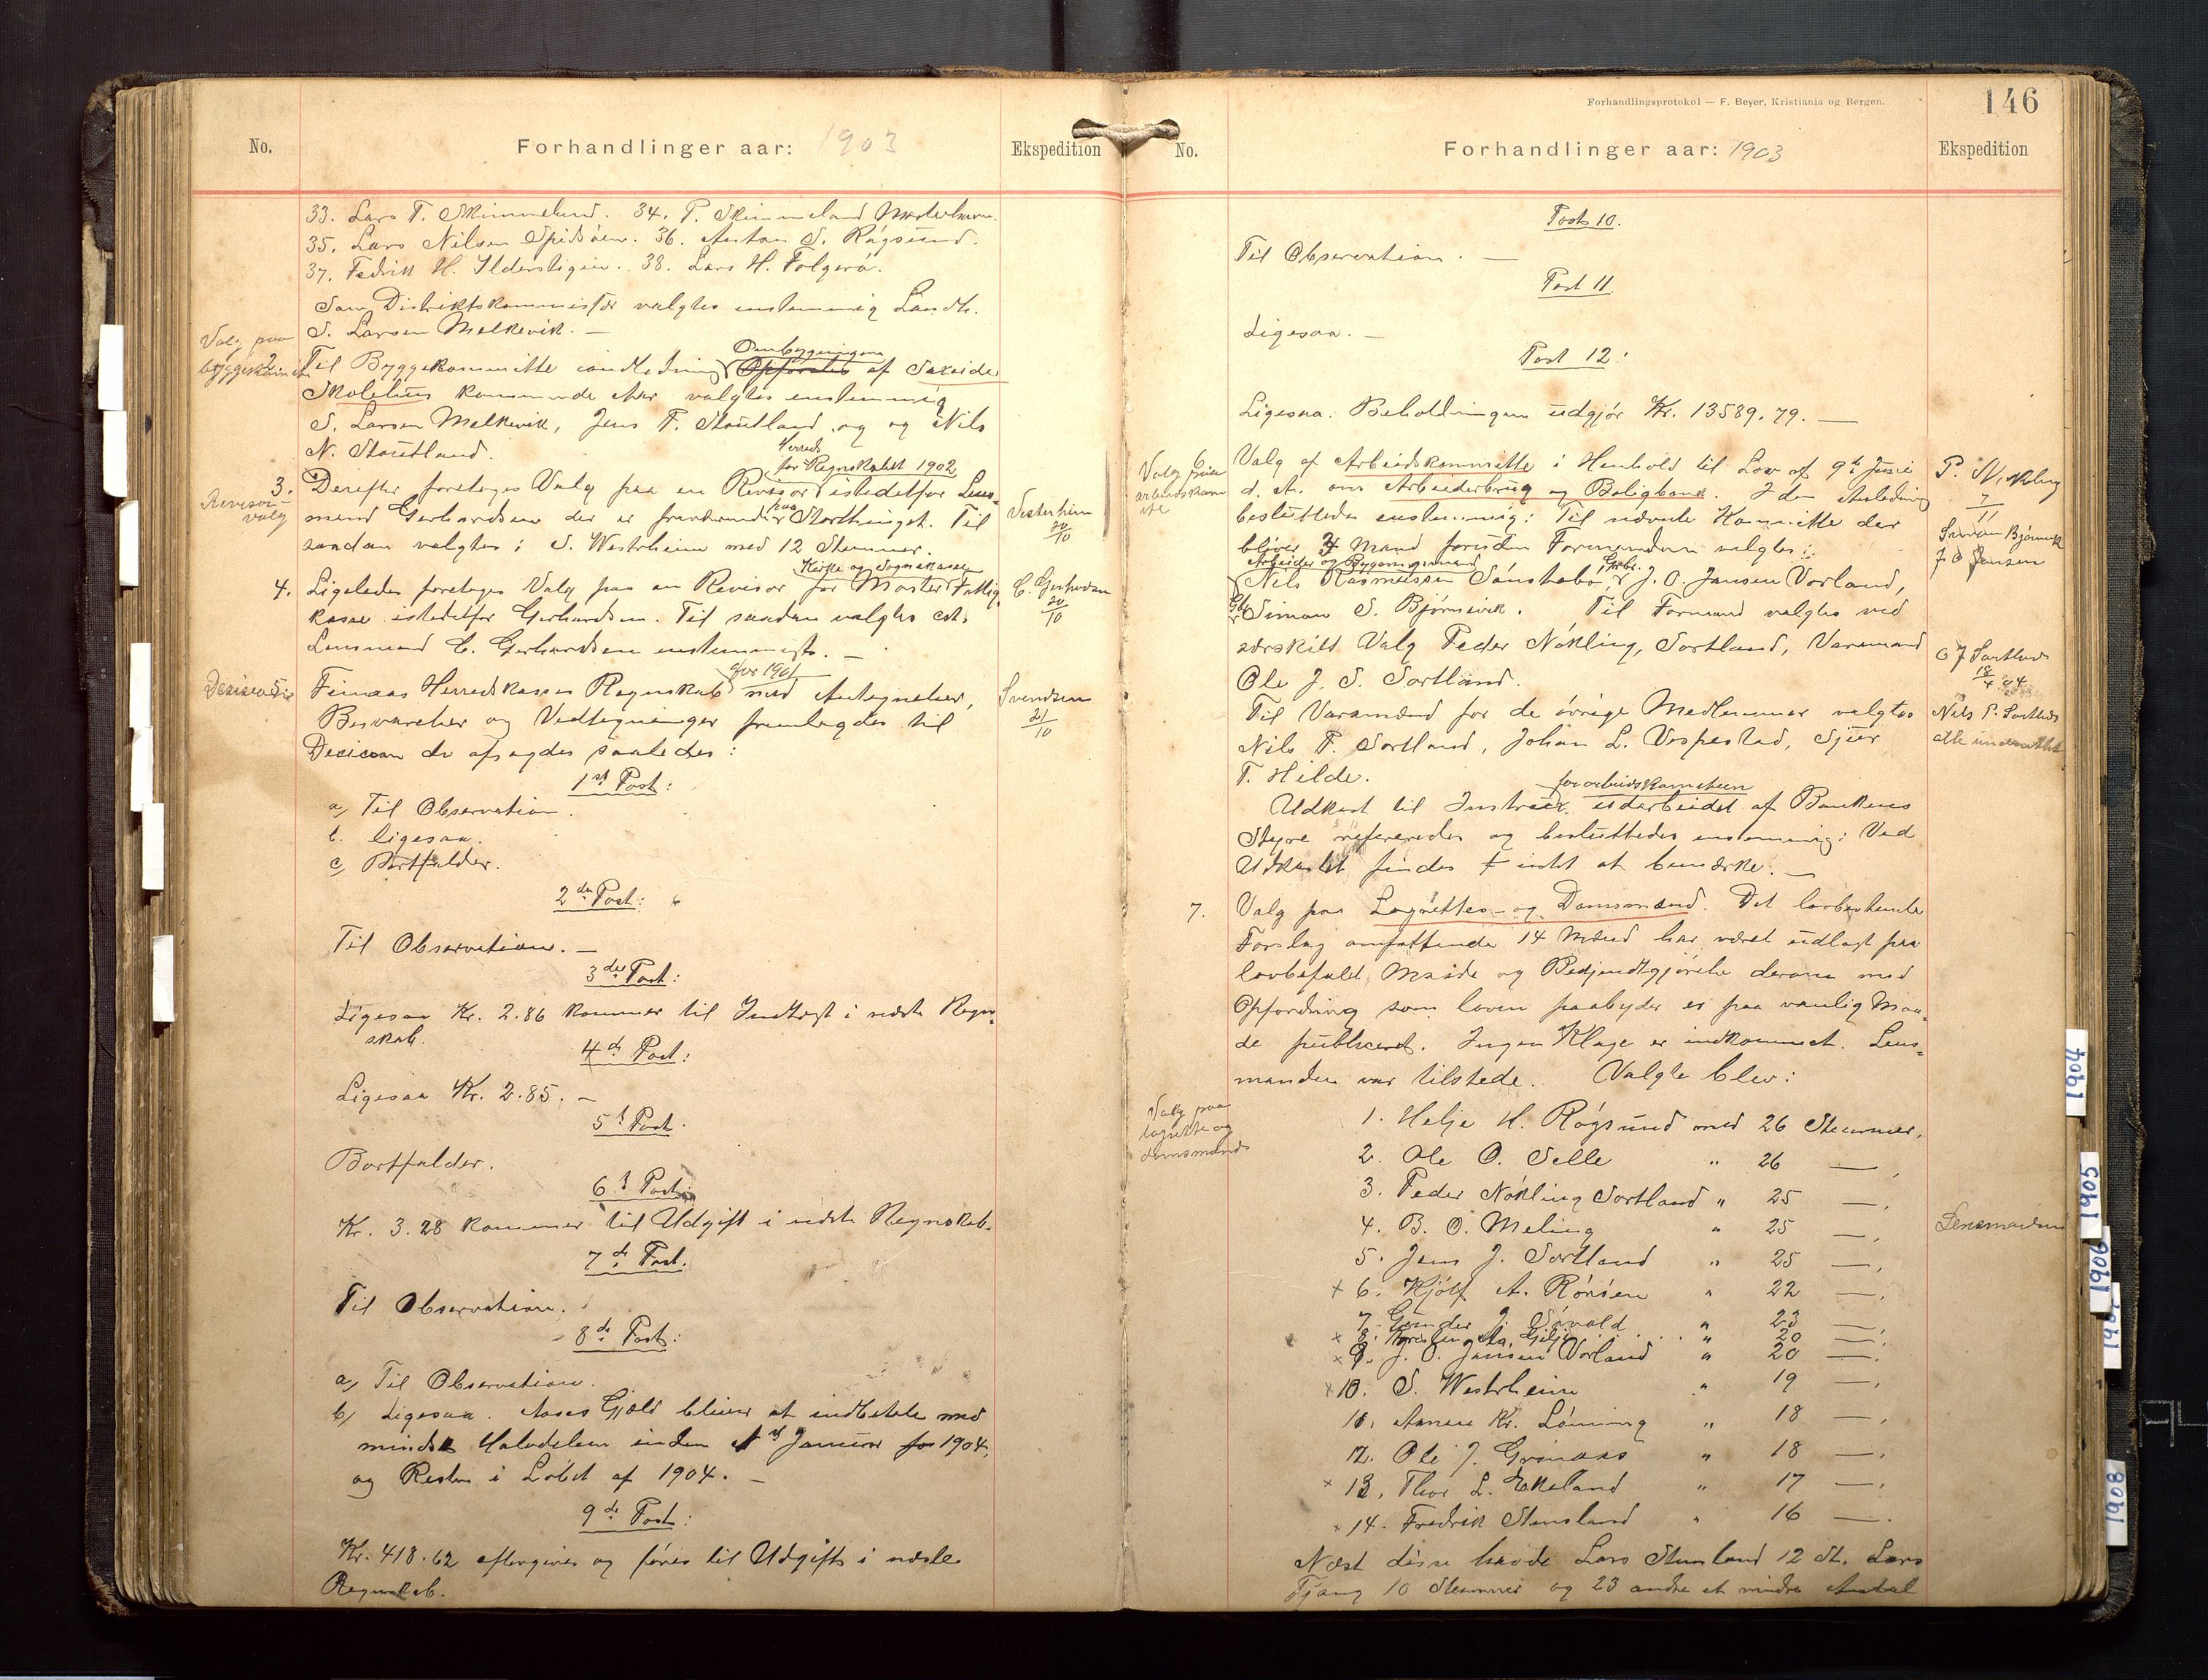 No.
Forhandlinger aar: 1903
Ekspedition
33. Lars T. Skimmeland. 34. P. Skimmeland Mosterhavn.
35. Lars Nilsen Spidsøen. 36. Anton S. Røgsund.
37. Fedrik H. Ilderstigin. 38. Lars H. Folgerø.
Som Distriktskommisær valgtes enstemmig Landh.
S. Larsen Melkevik. —
Valg paa
byggekomite
2.
Til Byggekommitte i anledning Ombygningen Opførelse af Saxeide
Skolehus kommende Aar valgtes enstemmig
S. Larsen Melkevik, Jens T. Stoutland og og Nils
N. Stoutland.
Herreds
for Regnskabet 1902
3.
Revisor
valg
Derefter foretoges Valg paa en Revisor istedetfor Lens-
mand Gerhardsen der er fraværende paa Storthinget. Til
saadan valgtes: S. Westrheim med 12 Stemmer.
Vesterheim
20/10
Kirke og Sognekasse
4. Ligeledes foretoges Valg paa en Revisor for Moster Fattig-
kasse istedetfor Gerhardsen. Til saadan valgtes cst.
Lensmand C. Gerhardsen enstemmigt. —
C. Gerhardsen
20/10
for 1901
Decision
5.
Finaas Herredskasses Regnskab med Antegnelser,
Besvarelser og Vedtegninger fremlagdes til
Decision der afsagdes saaledes:
Svendsen
21/10
1ste Post:
a, Til Observation.
b. ligesaa.
c, Bortfalder.
2den Post:
Til Observation. —
3die Post:
Ligesaa Kr. 2.86 kommer til Indtægt i næste Regn-
skab.
4de Post:
Ligesaa Kr. 2.85. —
5t Post.
Bortfalder.
6t Post:
Kr. 3.28 kommer til Udgift i næste Regnskab.
7de Post.
Til Observation.
8de Post:
a, Til Observation.
b, Ligesaa. Aases Gjæld bliver at indbetale med
mindst Halvdelen inden 1st Januar for 1904,
og Resten i Løbet af 1904. —
9de Post:
Kr. 418.62 eftergives og føres til Udgift i næste
Regnskab.
Forhandlingsprotokol — F. Beyer, Kristiania og Bergen.
146
No.
Forhandlinger aar: 1903
Ekspedition
Post 10.
Til Observation. —
Post 11
Ligesaa. —
Post 12.
Ligesaa. Beholdningen udgjør Kr. 13589.79. —
6
Valg af Arbeidskommitte i Henhold til Lov af 9de Juni
d. A. om Arbeiderbrug og Boligbank. I den Anledning
besluttedes enstemmig: Til nævnte Kommitte der
bliver 3 Mand foruden Formanden valgtes:
P. Nøkling
7/11
Simon Bjørnevik
J O Jansen
Arbeider og Bygningsmand
Nils Rasmussen Sønstabø, Grbr. J. O. Jansen Vorland,
Gbr Simon S. Bjørnevik. Til Formand valgtes ved
særskilt Valg Peder Nøkling, Sortland, Varamand
Ole J. S. Sortland.
O J Sortland
18/4 04
Til Varamænd for de øvrige Medlemmer valgtes
Nils P. Sortland, Johan L. Vespestad, Sjur
T. Hilde.
Nils P. Sortland
alle underrettet
for arbeidskomiteen
Udkast til Instrux udarbeidet af Bankens
Styre refereredes og besluttedes enstemmig: Ved
Udkastet findes intet at bemærke. —
7. Valg paa Lagrettes- og Domsmænd. Det lovbestemte
Forslag omfattende 14 Mænd har været udlagt paa
lovbefalt Maade og Bekjendtgjørelse derom med
Opfordring som loven paabyder er paa vanlig Maa-
de publiceret. Ingen Klage er indkommet. Lens-
manden var tilstede. Valgte blev:
Valg paa
lagrette og
domsmænd
1. Helje H. Røgsund med 26 Stemmer,
2. Ole O. Selle " 26 — ,
3. Peder Nøkling Sortland " 25 — ,
4. B. O. Meling " 25 — ,
Lensmanden
5. Jens J. Sortland " 25 — ,
+ 6. Kjølf A. Rønsen " 22 — ,
7. Gunder J. Vorvald " 23 — ,
x 8. Kresten A. Gilje " 20 — ,
x 9. J. O. Jansen Vorland " 20 — ,
x 10. S. Westrheim " 19 — ,
11. Aamen Kr. Lønning " 18 — ,
12. Ole J. Grønaas " 18 — ,
x 13. Thor L. Ekeland " 17 — ,
x 14. Fredrik Stensland " 16 — .
Næst disse havde Lars Stensland 12 St. Lars
Tjong 10 Stemmer og 23 andre et mindre Antal
1904
1905
1906
1908